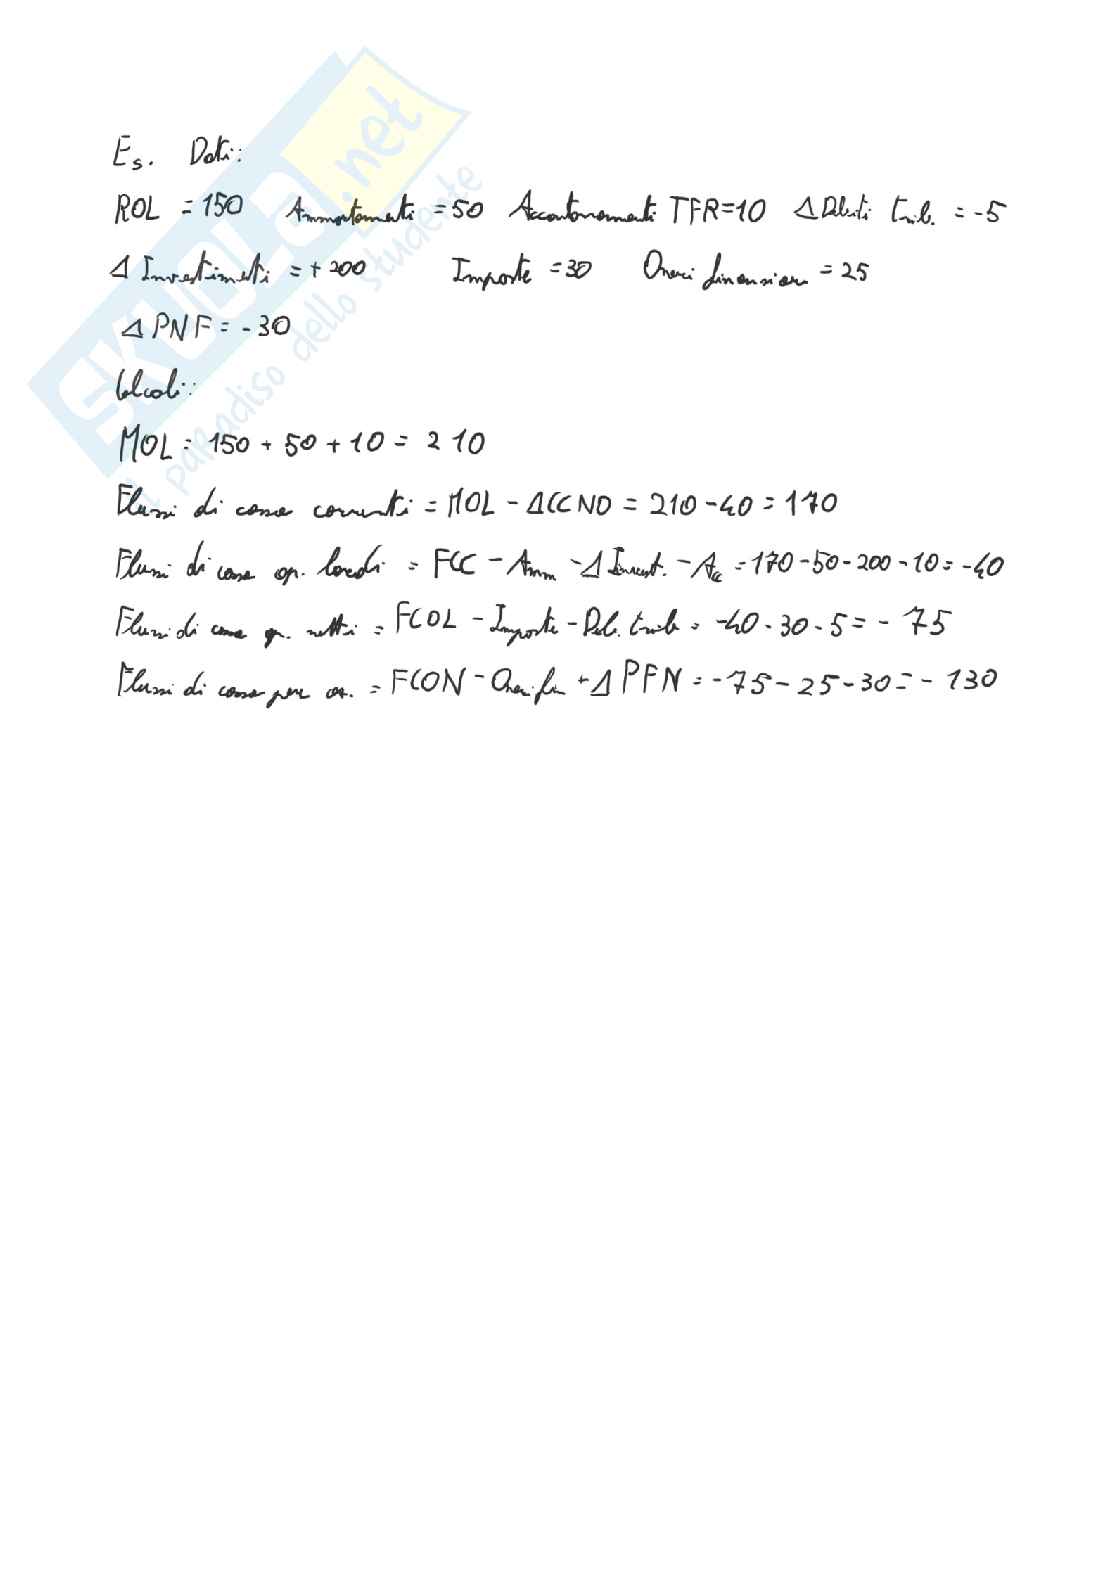 Es. Dati:
ROL = 150 Ammortamenti = 50 Accantonamenti TFR=10 Δ Debiti trib. = -5
Δ Investimenti = + 200 Imposte = 30 Oneri finanziari = 25
Δ PNF = - 30
Calcoli:
MOL = 150 + 50 + 10 = 210
Flussi di cassa correnti = MOL - ΔCCNO = 210 - 40 = 170
Flussi di cassa op. lordi = FCC - Amm - Δ Invest. - Acc = 170 - 50 - 200 - 10 = - 40
Flussi di cassa op. netti = FCOL - Imposte - Deb. trib = -40 - 30 - 5 = - 75
Flussi di cassa per az. = FCON - Oneri fin + Δ PFN = - 75 - 25 - 30 = - 130
SKUOLA.net
il paradiso dello studente